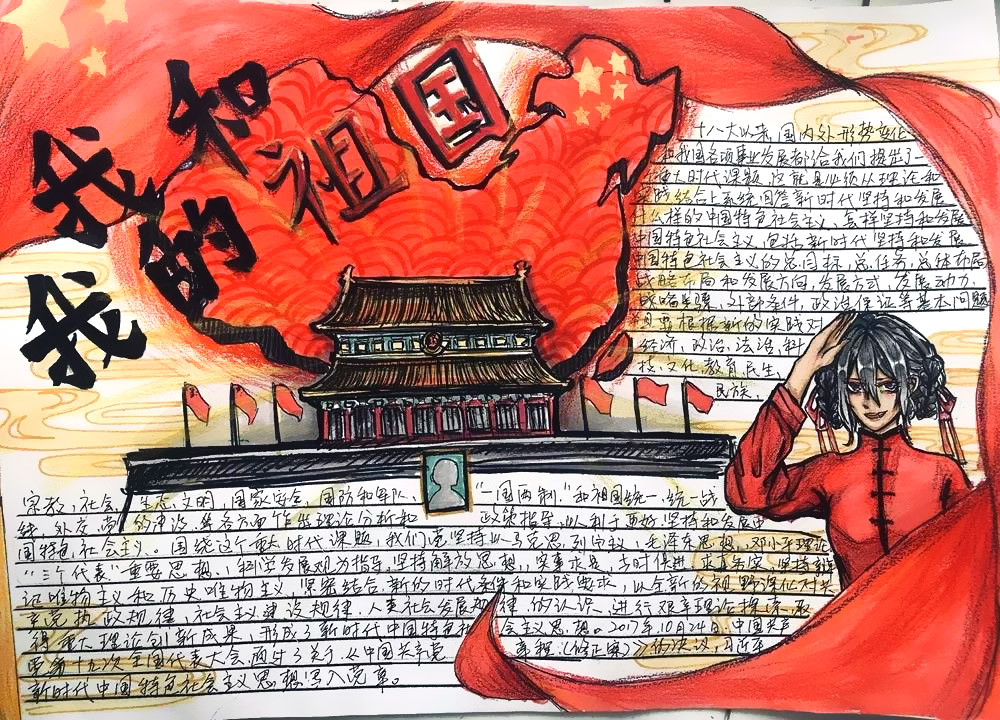 我和我的祖国
十八大以来,国内外形势变化
和我国各项事业发展都给我们提出了一
重大时代课题,这就是必须从理论和
实践结合上系统回答新时代坚持和发展
什么样的中国特色社会主义、怎样坚持和发展
中国特色社会主义,包括新时代坚持和发展
中国特色社会主义的总目标、总任务、总体布局
战略布局和发展方向、发展方式、发展动力、
战略步骤、外部条件、政治保证等基本问题
且要根据新的实践对
经济、政治、法治、科
技、文化、教育、民生、
民族、
宗教、社会、生态文明、国家安全、国防和军队、“一国两制”和祖国统一、统一战
线、外交、党的建设等各方面作出理论分析和政策指导,以利于更好坚持和发展中
国特色社会主义。围绕这个重大时代课题,我们党坚持以马克思列宁主义、毛泽东思想、邓小平理论
“三个代表”重要思想、科学发展观为指导,坚持解放思想、实事求是、与时俱进、求真务实,坚持辩
证唯物主义和历史唯物主义,紧密结合新的时代条件和实践要求,以全新的视野深化对共
产党执政规律、社会主义建设规律、人类社会发展规律的认识,进行艰辛理论探索,取
得重大理论创新成果,形成了新时代中国特色社会主义思想。2017年10月24日,中国共产
党第十九次全国代表大会通过了关于《中国共产党章程(修正案)》的决议,习近平
新时代中国特色社会主义思想写入党章。